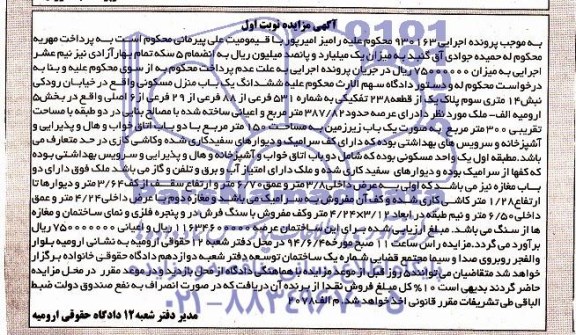 آگهی مزایده نوبت اول
به موجب پرونده اجرایی ۹۳۰۱۶۳ محکوم علیه رامیز امیرپور با قیمومیت علی پیرمانی محکوم است به پرداخت مهریه
محکوم له حمیده جوادی آق گنبد به میزان یک میلیارد و پانصد میلیون ریال به انضمام ۵ سکه تمام بهار آزادی نیز نیم عشر
اجرایی به میزان ۷۵۰۰۰۰۰۰ ریال در جریان پرونده اجرایی به علت عدم پرداخت محکوم به از سوی محکوم علیه و بنا به
درخواست محکوم له و دستور دادگاه سهم الارث محکوم علیه ششدانگ یک باب منزل مسکونی واقع در خیابان رودکی
نبش ۱۴ متری سوم پلاک یک از قطعه ۲۳۸ تفکیکی به شماره ۵۳۱ فرعی از ۸۸ فرعی از ۲۹ فرعی از ۶ اصلی واقع در بخش ۵
ارومیه الف- ملک مورد نظر دارای عرصه حدود ۳۸۷/۸۲ متر مربع و اعیانی ساخته شده با مصالح بنایی در دو طبقه با مساحت
تقریبی ۳۰۰ متر مربع به صورت یک باب زیرزمین به مساحت ۱۵۰ متر مربع با دو باب اتاق خواب و هال و پذیرایی و
آشپزخانه و سرویس های بهداشتی بوده که دارای کف سرامیک و دیوارهای سفیدکاری شده وکاشی کاری در حد متعارف می
باشد. طبقه اول یک واحد مسکونی بوده که شامل دو باب اتاق خواب و آشپزخانه و هال و پذیرایی و سرویس بهداشتی بوده
که کفها از سرامیک بوده و دیوارهای سفید کاری شده و ملک دارای امتیاز آب و برق و تلفن و گاز می باشد ملک فوق دارای دو
باب مغازه نیز می باشد که اولی به عرض داخلی ۳/۸ متر و عمق ۶/۷۰ متر و ارتفاع سقف از کف ۳/۶۴ متر و دیوارها تا
ارتفاع ۱/۲۸ متر کاشی کاری شده و کف آن مفروش به سرامیک می باشد و مغازه دوم با عرض داخلی ۴/۲۴ متر و عمق
داخلی ۶/۵۰ متر و نیم طبقه در ابعاد ۳/۱۱×۴/۲۴ متر وکف مفروش با سنگ فرش در و پنجره فلزی و نمای ساختمان و مغازه
ها از سنگ می باشد. مبلغ ارزیابی برای این ساختمان عرصه ریال و اعیانی ۷۵۰۰۰۰۰۰۰ ریال
برآورد می گردد. مزایده راس ساعت ۱۱ صبح مورخه ۹۴/۶/۴ در محل دفتر شعبه ۱۲ حقوقی ارومیه به نشانی ارومیه بلوار
والفجر روبروی صدا و سیما مجتمع قضایی شماره یک ساختمان توسعه دفتر شعبه دوازدهم دادگاه حقوقی خانواده برگزار
خواهد شد متقاضیان می توانند ۵ روز قبل از موعد مزایده با هماهنگی دادگاه از محل بازدید و در موعد مقرر در محل مزایده
حاضر گردند بدیهی است ۱۰% کل مبلغ فروش نقدا از برنده آن دریافت که در صورت انصراف به نفع صندوق دولت ضبط
الباقی طی تشریفات مقرر قانونی اخذ خواهد شد. م الف ۲۰۷۸
مدیر دفتر شعبه ۱۲ دادگاه حقوقی ارومیه